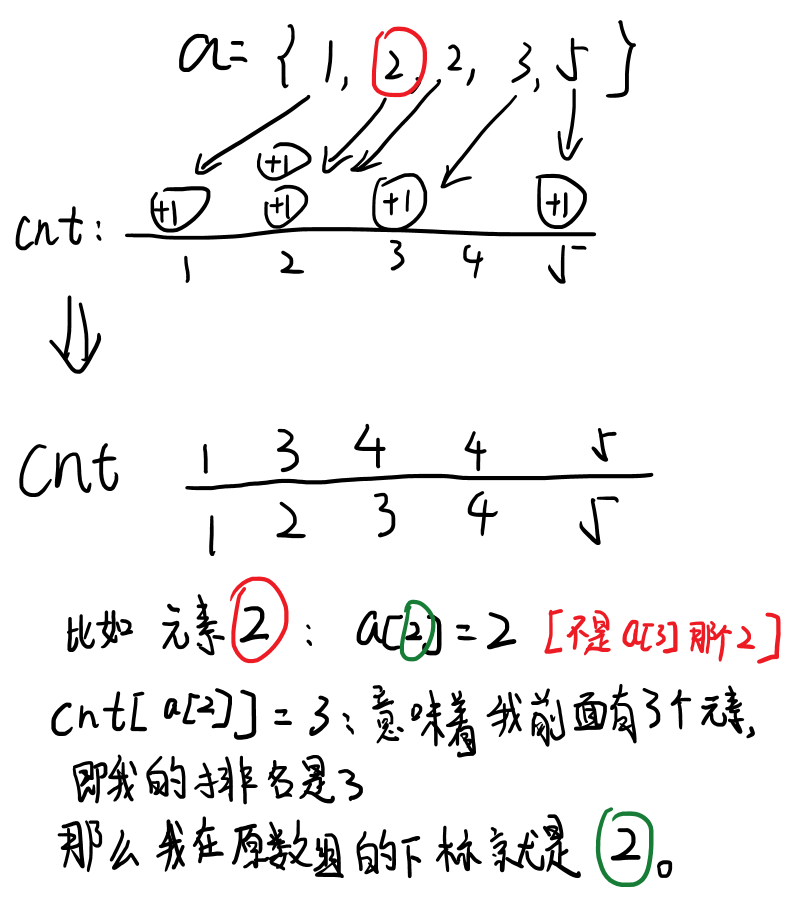 a = { 1, 2, 2, 3, 5 }
+1
+1 +1 +1 +1
cnt:
1 2 3 4 5
cnt 1 3 4 4 5
1 2 3 4 5
比如 元素 2 : a[2] = 2 [不是 a[3] 那个 2]
cnt[ a[2] ] = 3: 意味着 我前面有3个元素,
即我的排名是3
那么我在原数组的下标就是 2。